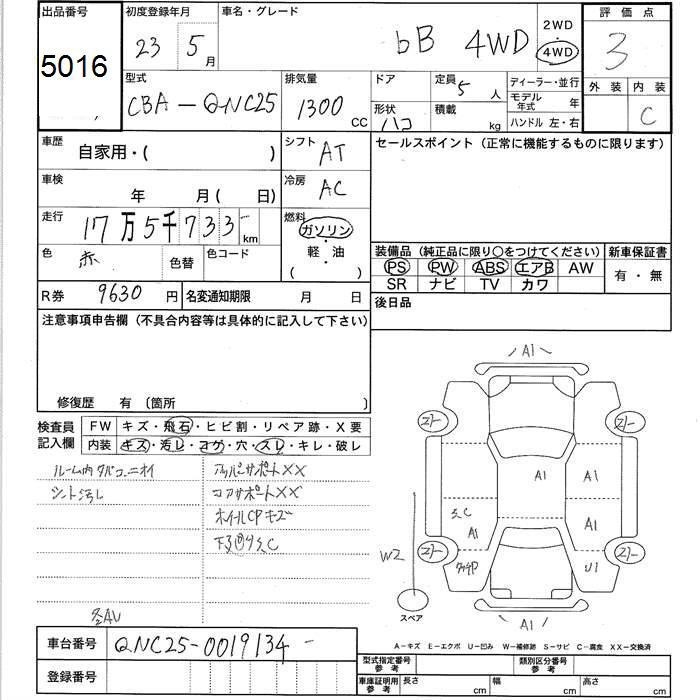 出品番号
5016
初度登録年月
23 5月
車名・グレード
bB 4WD
2WD
・
4WD
評価点
3
外装 内装
C
型式
CBA-QNC25
排気量
1300 CC
ドア
形状
ハコ
定員
5 人
積載
kg
ディーラー・並行
モデル年式 年
ハンドル 左・右
車歴
自家用・( )
シフト
AT
車検
年 月( 日)
冷房
AC
走行
17万5千733 km
燃料
ガソリン
・
軽油
( )
色
赤
色替
色コード
R券 9630 円
名変通知期限 月 日
セールスポイント(正常に機能するものに限ります)
装備品(純正品に限り○をつけてください)
PS PW ABS エアB AW
SR ナビ TV カワ
新車保証書
有・無
後日品
注意事項申告欄(不具合内容等は具体的に記入して下さい)
修復歴 有〔箇所 〕
検査員記入欄
FW キズ・飛石・ヒビ割・リペア跡・X要
内装 キズ・汚レ・コゲ・穴・スレ・キレ・破レ
ルーム内タバコニオイ
シート汚レ
アッパーサポートXX
コアサポートXX
ホイルCPキズ
各AU
A1
A1
A1
A1
A1
U1
W2
A1
スペア
A-キズ E-エクボ U-凹み W-補修跡 S-サビ C-腐食 XX-交換済
車台番号 QNC25-0019134
登録番号
型式指定番号 参考
類別区分番号 参考
車庫証明用 参考
長さ cm
幅 cm
高さ cm